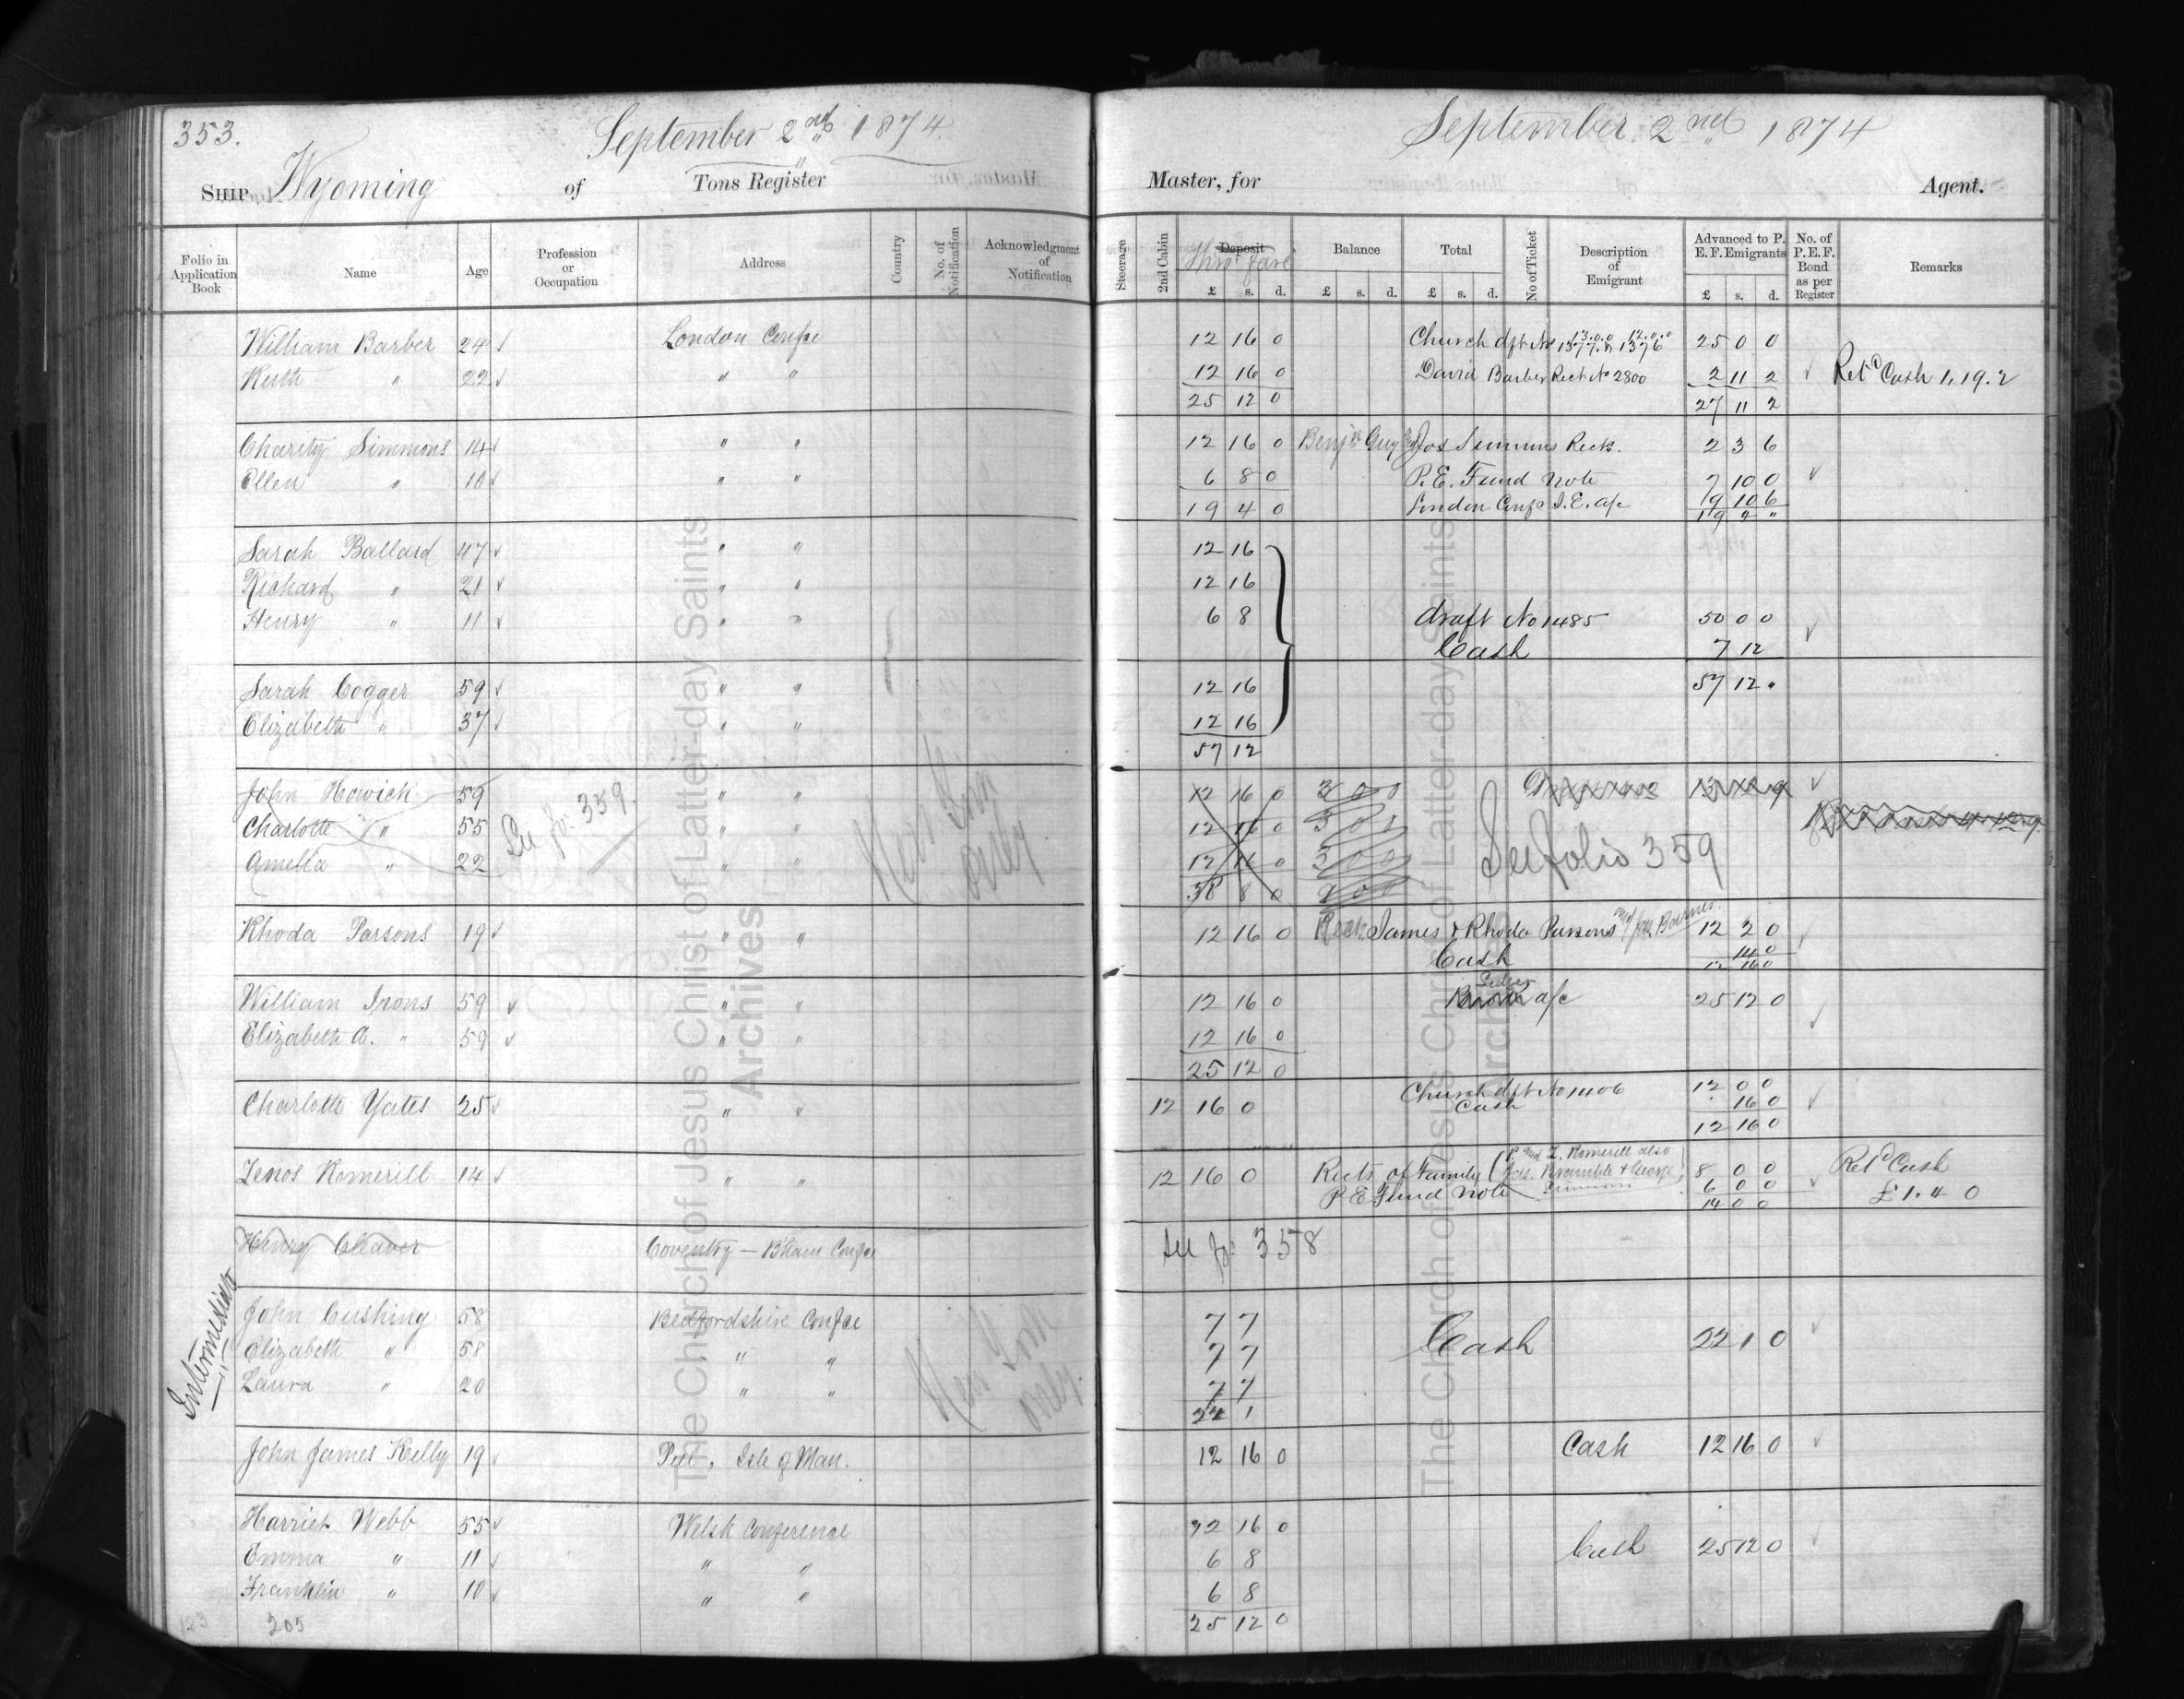 353.
September 2nd 1874.
SHIP Wyoming of Tons Register
Folio in Application Book | Name | Age | Profession or Occupation | Address | Country | No. of Notification | Acknowledgment of Notification
William Barber 24 London Confce
Ruth " 22 " "
Charity Simmons 14 " "
Ellen " 10 " "
Sarah Ballard 47 " "
Richard " 21 " "
Henry " 11 " "
Sarah Cogger 59 " "
Elizabeth " 37 " "
John Howick 59 " "
Charlotte " 55 See fo: 359. " " New York only
Amelia " 22 " "
Rhoda Parsons 19 " "
William Irons 59 " "
Elizabeth A. " 59 " "
Charlotte Yates 25 " "
Zenos Romerill 14 " "
Henry Cleaver Coventry — B'ham Confce
Intermediate
John Cushing 58 Bedfordshire Confce
Elizabeth " 58 " " New York only.
Laura " 20 " "
John James Kelly 19 Peel, Isle of Man.
Harriet Webb 55 Welsh Conference
Emma " 11 " "
Franklin " 10 " "
123 205
September 2nd 1874
Master, for Agent.
Steerage | 2nd Cabin | Deposit £ s. d. | Balance £ s. d. | Total £ s. d. | No of Ticket | Description of Emigrant | Advanced to P. E. F. Emigrants £ s. d. | No. of P.E.F. Bond as per Register | Remarks
Thro' fare
13.0.0 12.0.0
12 16 0 Church dft No 1377 & 1376 25 0 0
12 16 0 David Barber Rect No 2800 2 11 2 Retd Cash 1, 19. 2
25 12 0 27 11 2
12 16 0 Benjn Guy & Jos Simmons Rects. 2 3 6
6 8 0 P. E. Fund Note 7 10 0
19 4 0 London Confce I. E. a/c 9 10 6
19 4 "
12 16
12 16
6 8 draft No 1485 50 0 0
Cash 7 12
12 16 57 12 "
12 16
57 12
12 16 0 3 0 0
12 16 0 3 0 0
12 16 0 3 0 0 See folio 359
38 8 0 9 0 0
12 16 0 Rects James & Rhoda Parsons and Jas. Barnes. 12 2 0
Cash 14 0
12 16 0
12 16 0 a/c 25 12 0
12 16 0
25 12 0
Church dft No 1406 12 0 0
12 16 0 Cash 16 0
12 16 0
12 16 0 Rects of Family (P. and Z. Romerill also Jas. Bramble & George Simmons) 8 0 0 Retd Cash
P E Fund Note 6 0 0 £ 1. 4 0
14 0 0
See fo: 358
7 7
7 7 Cash 22 1 0
7 7
22 1
12 16 0 Cash 12 16 0
12 16 0
6 8 Cash 25 12 0
6 8
25 12 0
The Church of Jesus Christ of Latter-day Saints
Archives
The Church of Jesus Christ of Latter-day Saints
Archives